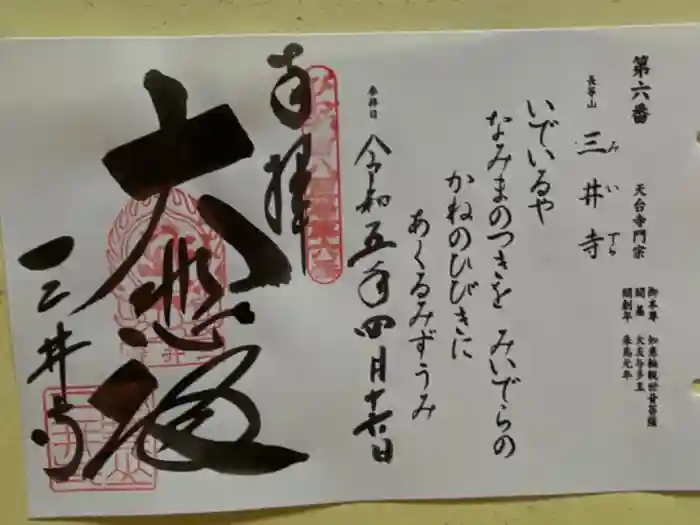 第六番
天台寺門宗
御本尊 如意輪観世音菩薩
開基 大友与多王
開創年 朱鳥元年
長等山 三井寺
みいでら
いでいるや
なみまのつきを みいでらの
かねのひびきに
あくるみずうみ
参拝日 令和五年四月十六日
奉拝
大悲殿
三井寺